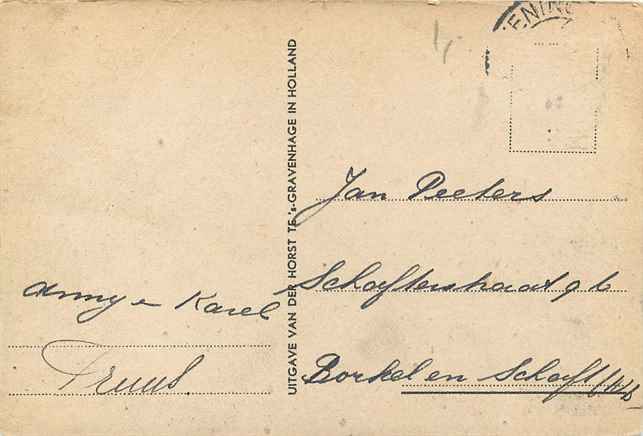 ENIN
UITGAVE VAN DER HORST TE 's-GRAVENHAGE IN HOLLAND
Anny en Karel
Truus.
Jan Peeters
Schafterstraat 96
Borkel en Schaft